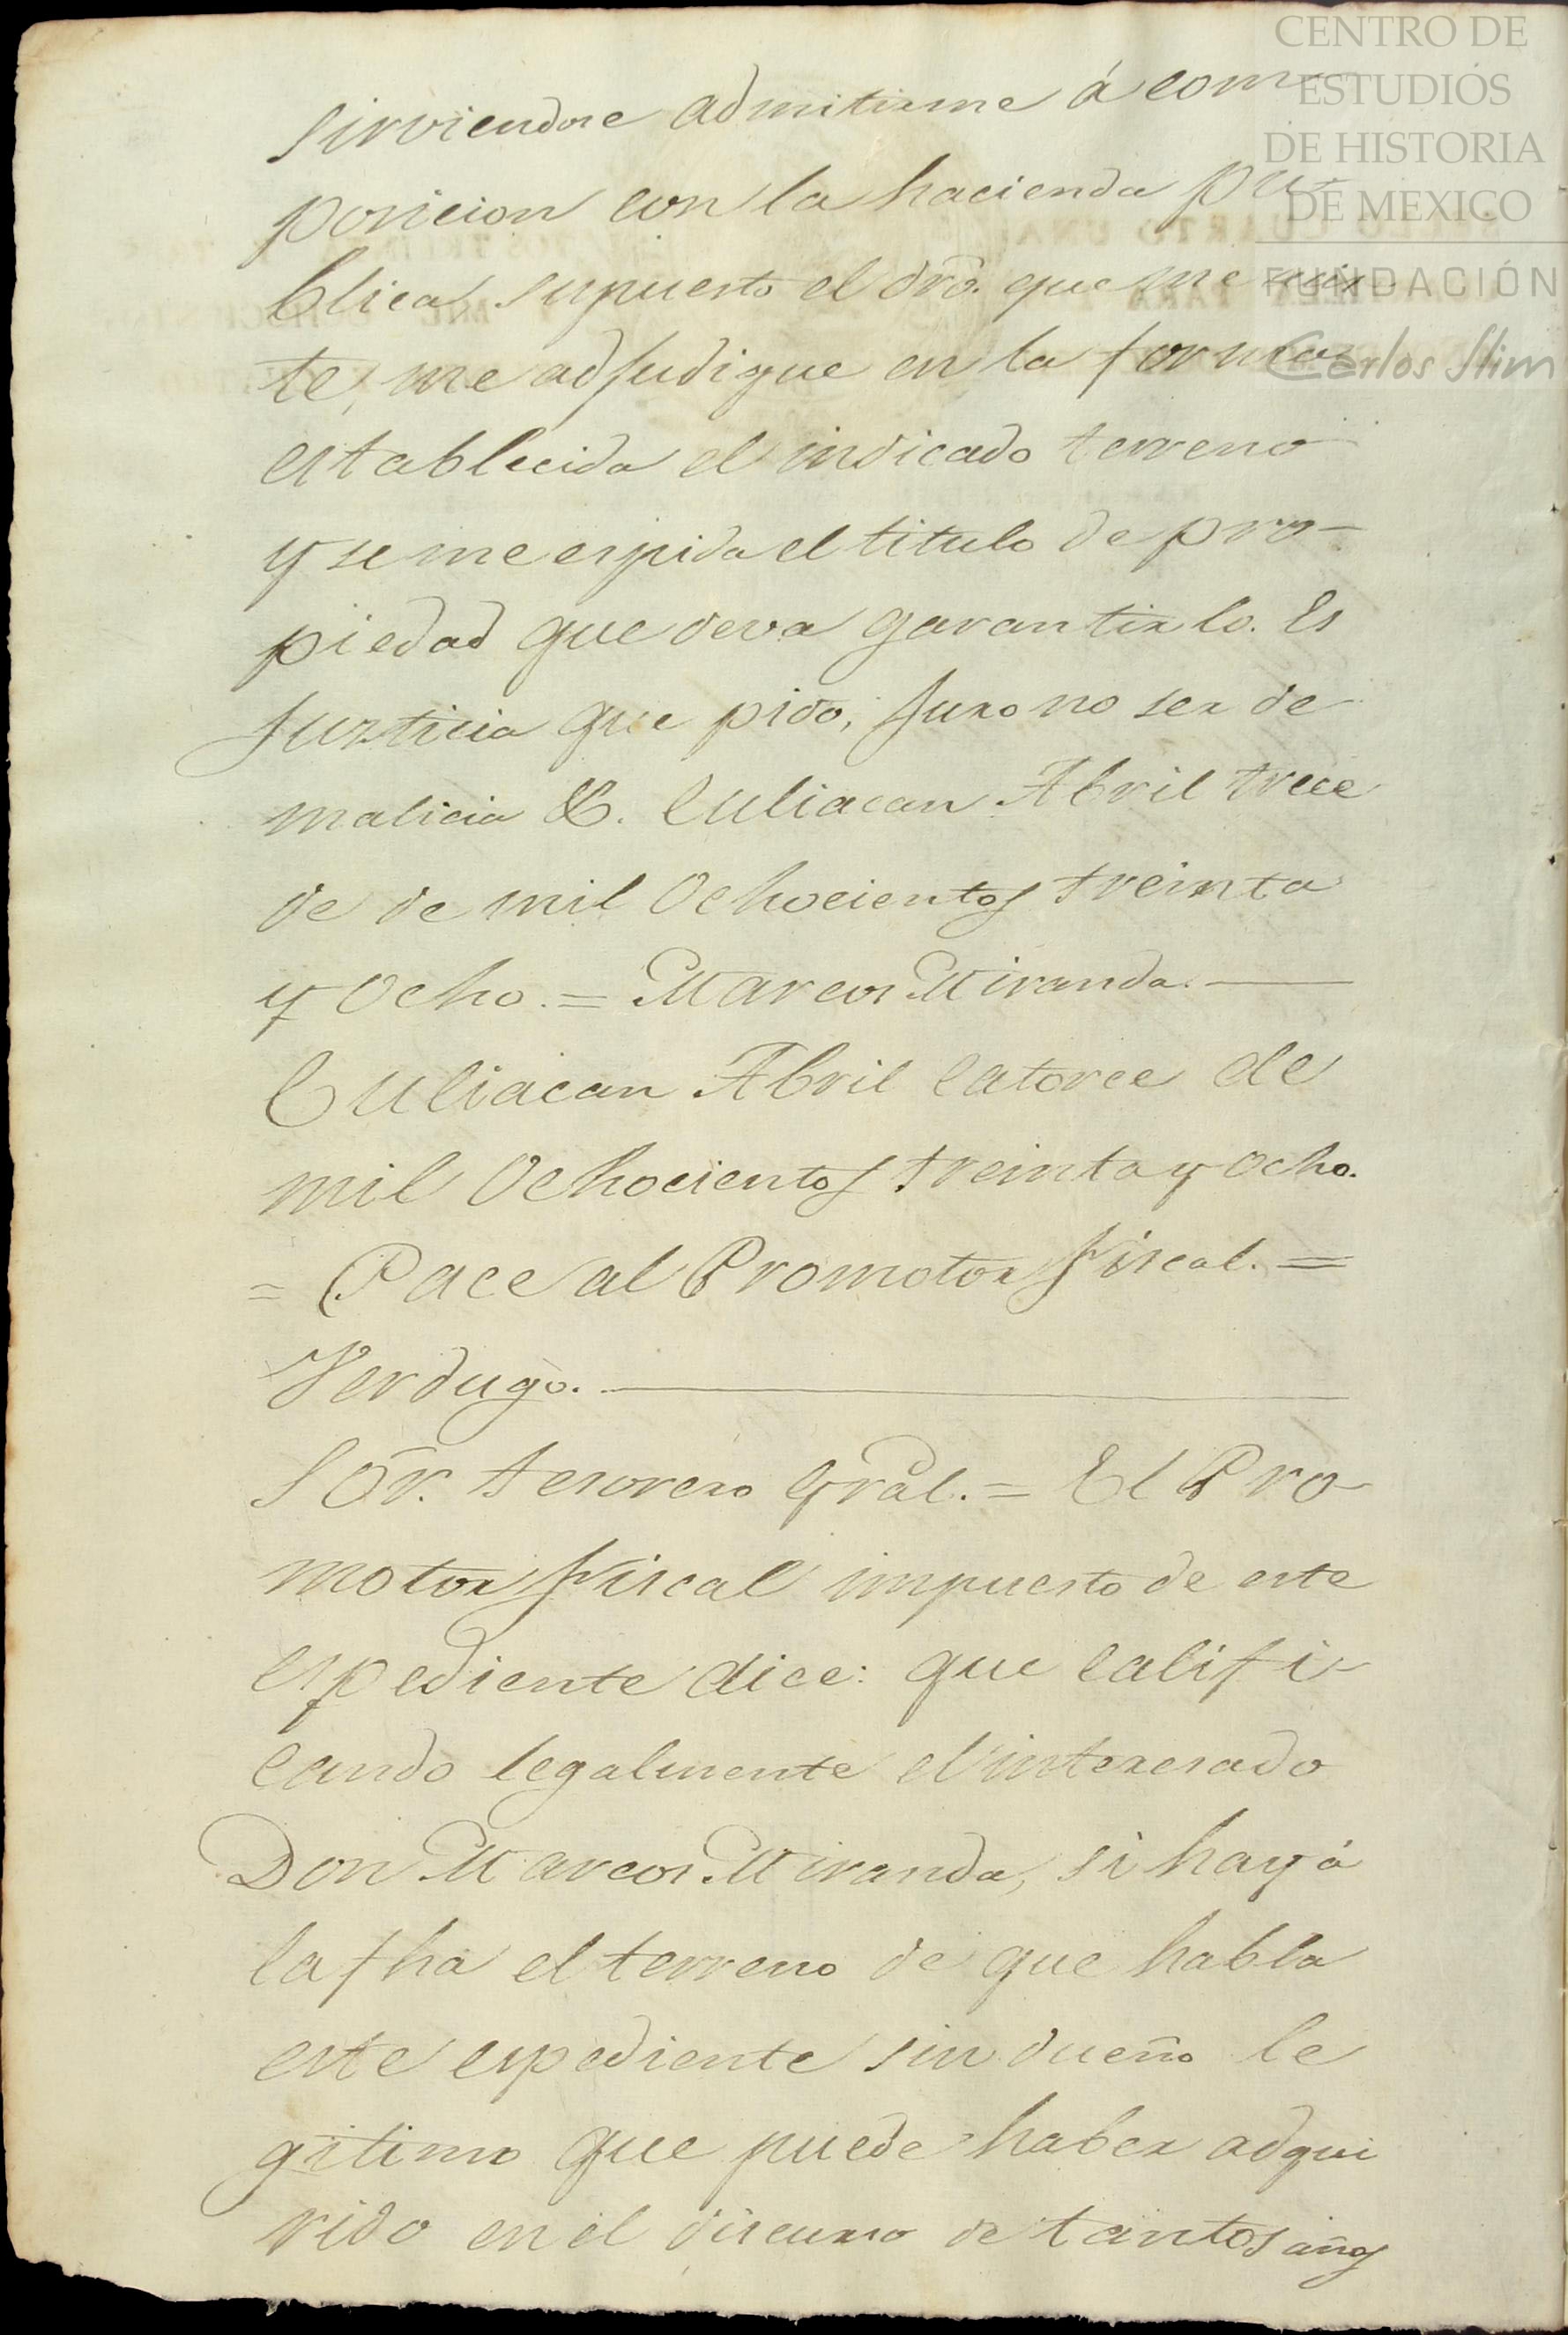 CENTRO DE
ESTUDIOS
DE HISTORIA
DE MEXICO
FUNDACIÓN
Carlos Slim
sirviendose admitirme á com
posicion con la hacienda pu-
blica supuesto el dro. que me asis-
te, me adjudique en la forma
establecida el indicado terreno
y se me espida el titulo de pro-
piedad que deva garantirlo. Es
Justicia que pido, juro no ser de
malicia &. Culiacan Abril trece
de de mil Ochocientos treinta
y Ocho. = Marcos Miranda. —
Culiacan Abril catorce de
mil Ochocientos treinta y ocho.
= Pace al Promotor Fiscal. =
Verdugo. —
Sor. tesorero Gral. = El Pro-
motor Fiscal impuesto de este
espediente dice: que califi-
cando legalmente el interesado
Don Marcos Miranda, si hay á
la fha el terreno de que habla
este espediente sin dueño le
gitimo que puede haber adqui
rido en el discurso de tantos años